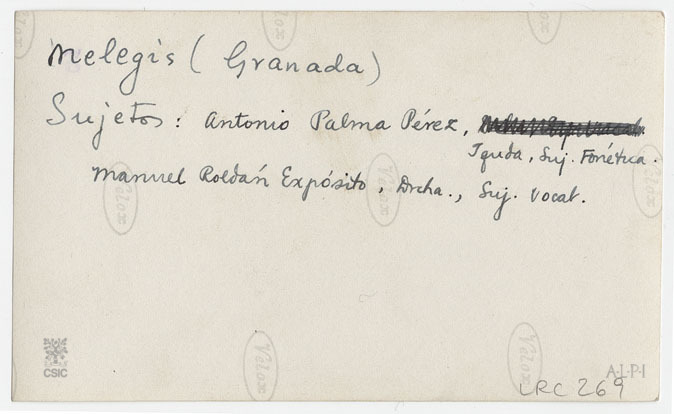 Melegis (Granada)
Sujetos: Antonio Palma Pérez,
Izqda, Suj. Fonética.
Manuel Roldán Expósito, Drcha., Suj. vocab.
Velox
Velox
Velox
Velox
Velox
CSIC
A·L·P·I
LRC 269